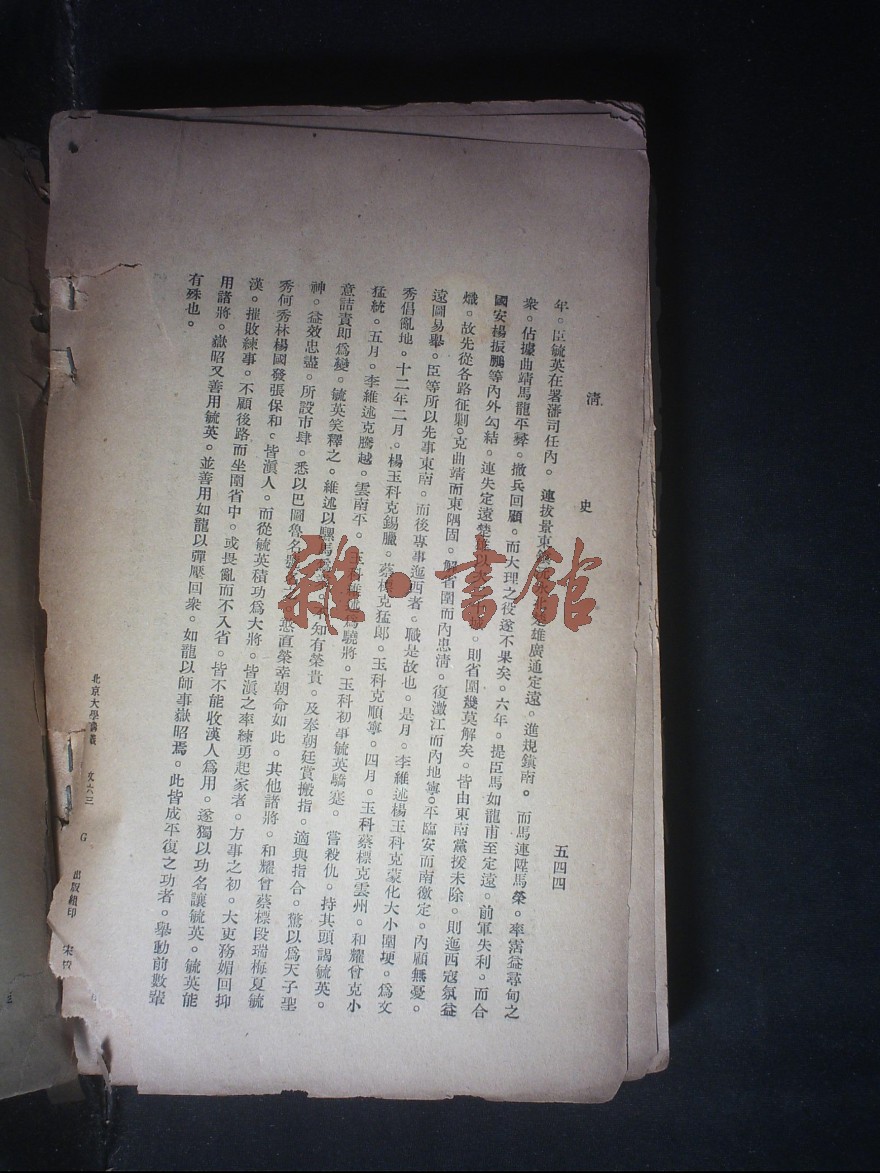 清 史 五四四
年。臣毓英在署藩司任內。連拔景東 雄廣通定遠。進規鎮南。而馬連陞馬榮。率霑益尋甸之
衆。佔據曲靖馬龍平彝。撤兵回顧。而大理之役遂不果矣。六年。提臣馬如龍甫至定遠。前軍失利。而合
國安楊振鵬等內外勾結。連失定遠楚雄以 則省圍幾莫解矣。皆由東南黨援未除。則迤西寇氛益
熾。故先從各路征剿。克曲靖而東隅固。解省圍而內患清。復澂江而內地寧。平臨安而南徼定。內顧無憂。
遠圖易舉。臣等所以先事東南。而後專事迤西者。職是故也。是月。李維述楊玉科克蒙化大小圍埂。爲文
秀倡亂地。十二年二月。楊玉科克錫臘。蔡標克猛郎。玉科克順寧。四月。玉科蔡標克雲州。和耀曾克小
猛統。五月。李維述克騰越。雲南平。玉科維述爲驍將。玉科初事毓英驕蹇。嘗殺仇。持其頭謁毓英。
意詰責即爲變。毓英笑釋之。維述以騾馬 不知有榮貴。及奉朝廷賞搬指。適與指合。驚以爲天子聖
神。益效忠盡。所設市肆。悉以巴圖魯名 憨直榮幸朝命如此。其他諸將。和耀曾蔡標段瑞梅夏毓
秀何秀林楊國發張保和。皆滇人。而從毓英積功爲大將。皆滇之率練勇起家者。方事之初。大吏務媚回抑
漢。摧敗練事。不顧後路而坐圍省中。或畏亂而不入省。皆不能收漢人爲用。遂獨以功名讓毓英。毓英能
用諸將。嶽昭又善用毓英。並善用如龍以彈壓回衆。如龍以師事嶽昭焉。此皆成平復之功者。舉動前數輩
有殊也。
北京大學講義 文六三 G 出版組印 宋
雜·書館